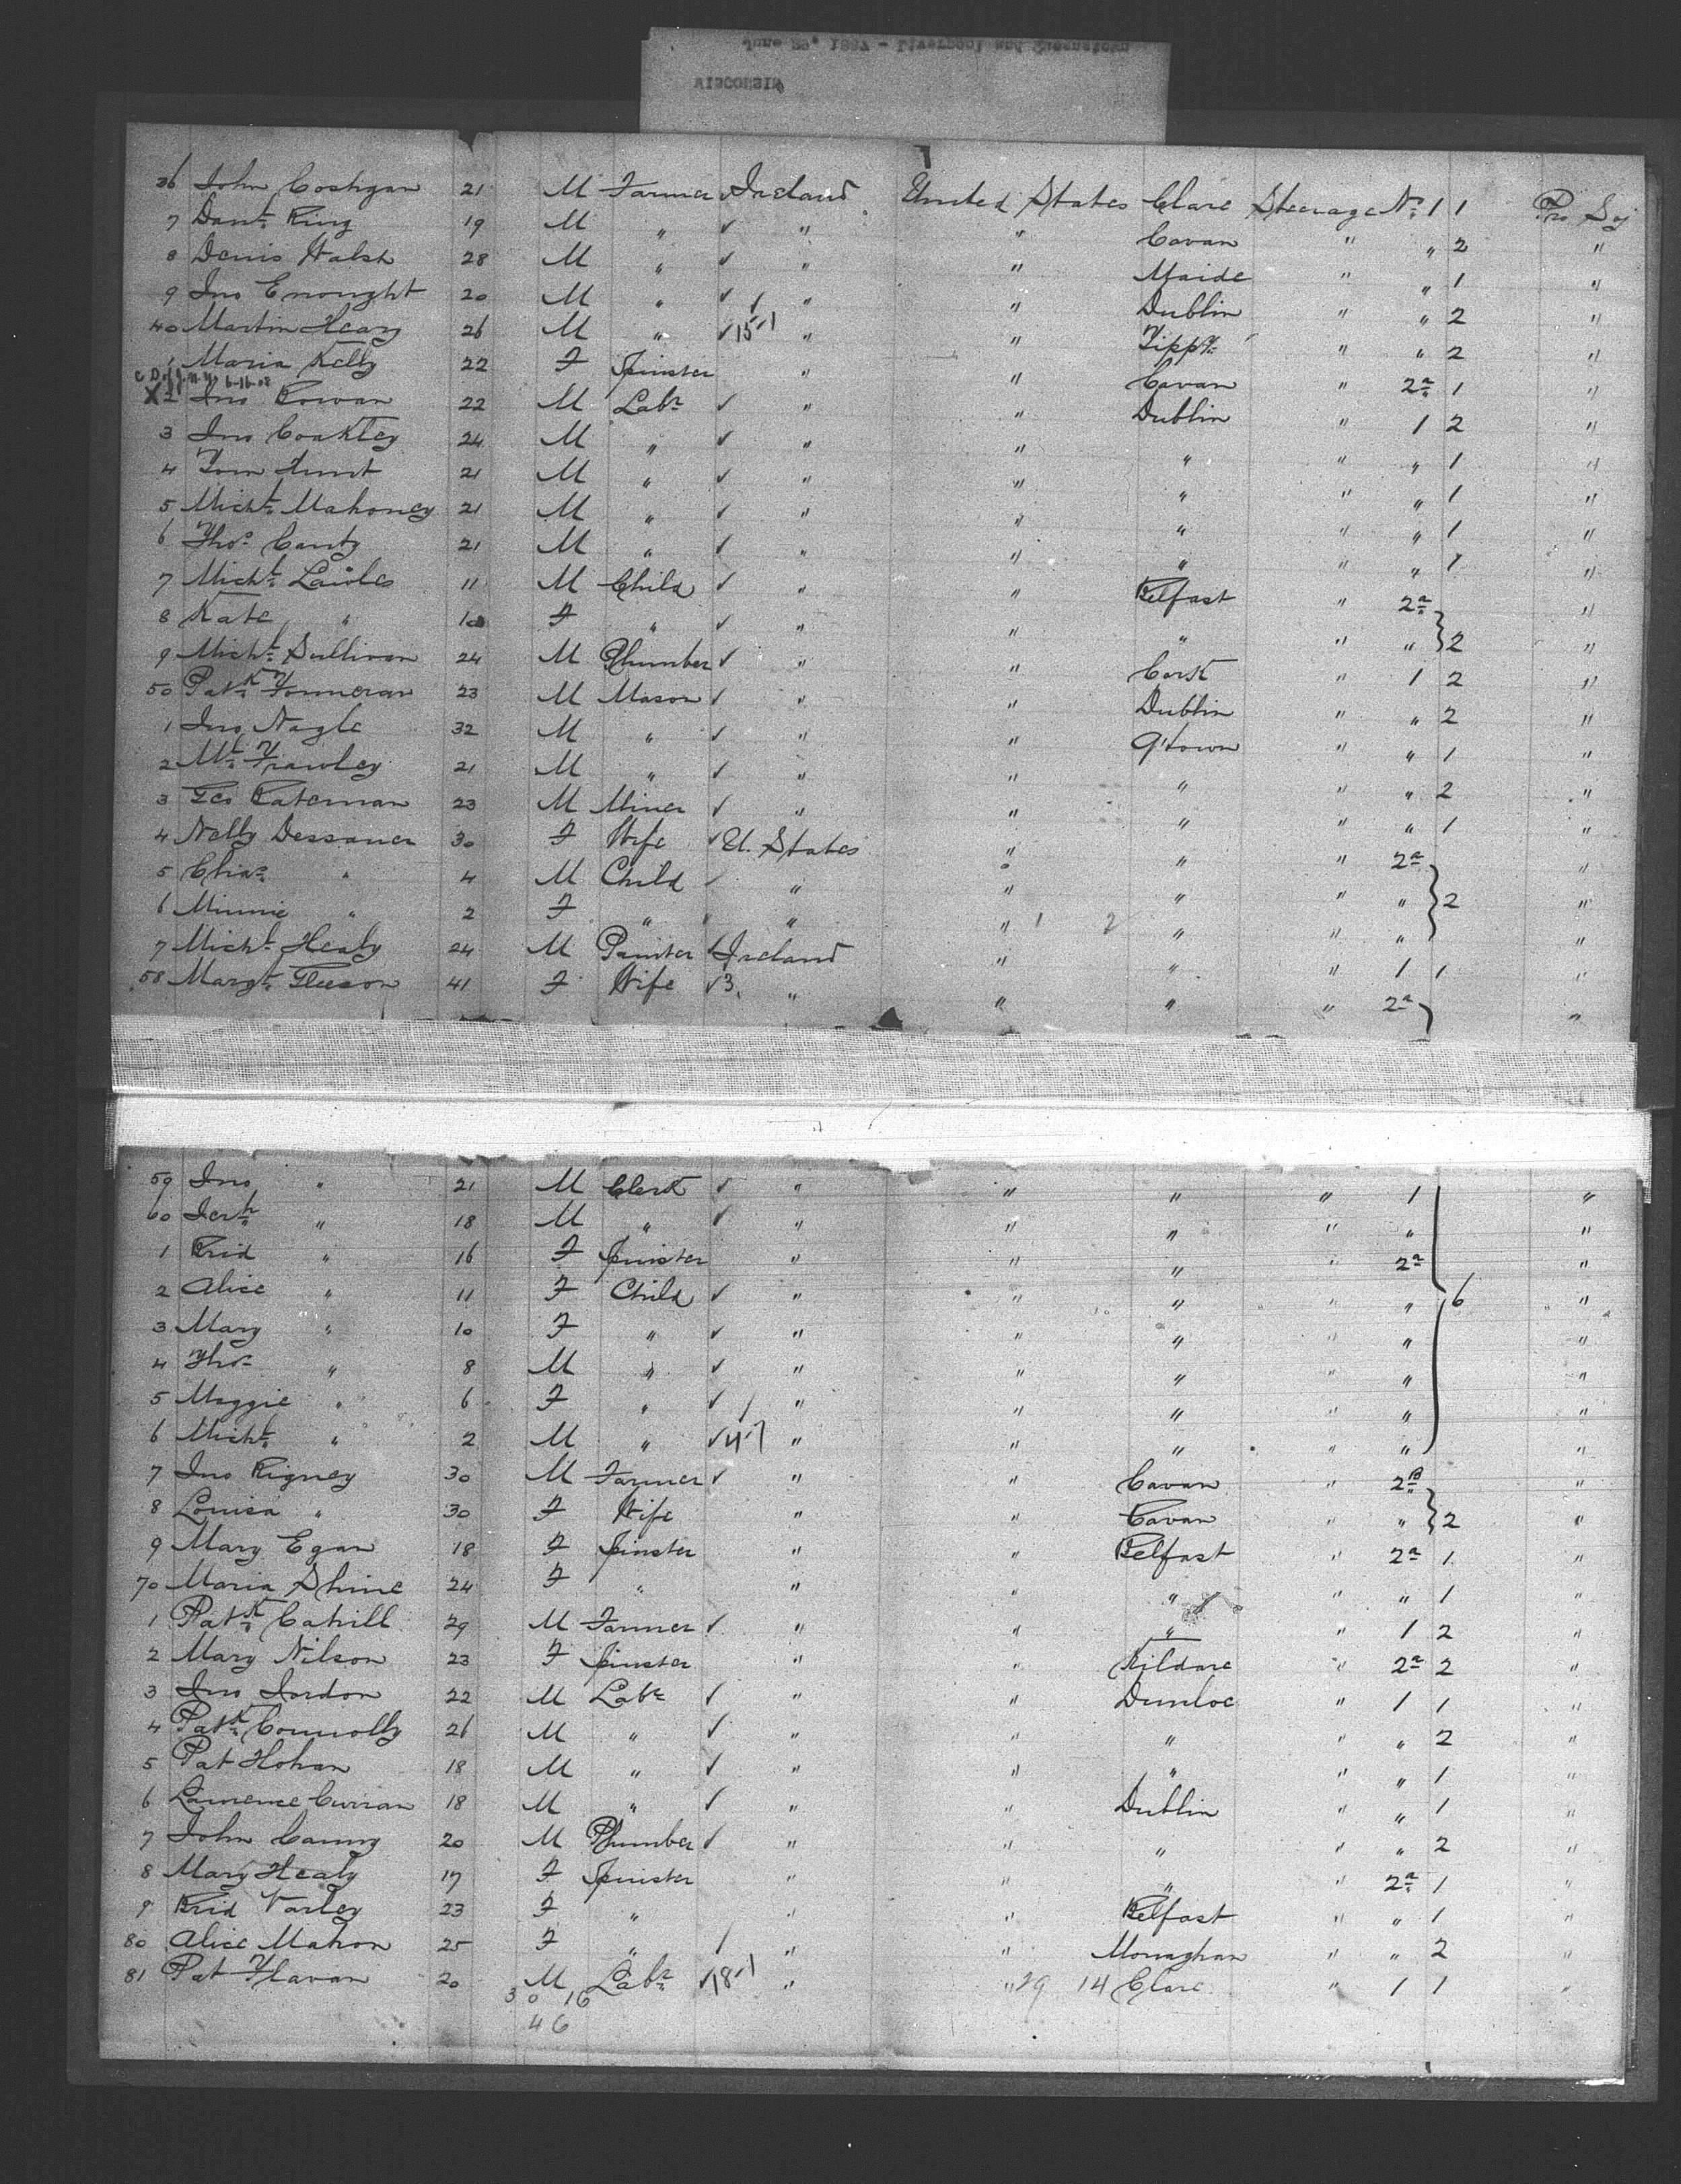 June 29" 1887 - Liverpool and Queenstown
WISCONSIN
36 John Costigan 21 M Farmer ✓ Ireland United States Clare Steerage No. 1 1 Pro Soj
7 Danl. Ring 19 M " ✓ " " Cavan " " 2 "
8 Denis Walsh 28 M " ✓ " " " " 1 "
9 Jno Enought 20 M " ✓ " " Dublin " " 2 "
40 Martin Heary 26 M " ✓ 15-1 " " Tippy. " " 2 "
1 Maria Kelly 22 F Spinster " " Cavan " 2a 1 "
6-16-08
X 2 Jno Rowan 22 M Labr ✓ " " Dublin " 1 2 "
3 Jno Coakley 24 M " ✓ " " " " " 1 "
4 Tom Hunt 21 M " ✓ " " " " " 1 "
5 Michl. Mahoney 21 M " ✓ " " " " " 1 "
6 Thos. Canty 21 M " ✓ " " " " " 1 "
7 Michl. Lawles 11 M Child ✓ " " Belfast " 2a "
8 Kate " 10 F " ✓ " " " " " } 2 "
9 Michl. Sullivan 24 M Plumber ✓ " " Cork " 1 2 "
50 Patk. Finneran 23 M Mason ✓ " " Dublin " " 2 "
1 Jno Nagle 32 M " ✓ " " Q'town " " 1 "
2 Ml. Frawley 21 M " ✓ " " " " " 2 "
3 Geo Bateman 23 M Miner ✓ " " " " " 1 "
4 Nelly Dessauer 30 F Wife ✓ U. States " " " 2a "
5 Chas. " 4 M Child ✓ " " " " " } 2 "
6 Minnie " 2 F " " " " 1 2 " " " "
7 Michl. Healy 24 M Painter ✓ Ireland " " " 1 1 "
58 Margt. Gleeson 41 F Wife ✓ 3. " " " " 2a "
59 Jno " 21 M Clerk ✓ " " " " 1 "
60 Jerh. " 18 M " ✓ " " " " " "
1 Brid " 16 F Spinster " " " " 2a "
2 Alice " 11 F Child ✓ " " " " " 6 "
3 Mary " 10 F " ✓ " " " " " "
4 Thos. " 8 M " ✓ " " " " " "
5 Maggie " 6 F " ✓ " " " " " "
6 Michl. " 2 M " ✓ 4-7 " " " " " "
7 Jno Rigney 30 M Farmer ✓ " " Cavan " 2B "
8 Louisa " 30 F Wife " " Cavan " " } 2 "
9 Mary Egan 18 F Spinster " " Belfast " 2a 1 "
70 Maria Shine 24 F " " " " " " 1 "
1 Patk. Cahill 29 M Farmer ✓ " " " " 1 2 "
2 Mary Nilson 23 F Spinster " " Kildare " 2a 2 "
3 Jno Jordon 22 M Labr ✓ " " Dunloe " 1 1 "
4 Patk. Connolly 26 M " ✓ " " " " " 2 "
5 Pat Hohan 18 M " ✓ " " " " " 1 "
6 Lawrence Curran 18 M " ✓ " " Dublin " " 1 "
7 John Canny 20 M Plumber ✓ " " " " " 2 "
8 Mary Healy 17 F Spinster " " " " 2a 1 "
9 Brid Varley 23 F " " " Belfast " " 1 "
80 Alice Mahon 25 F " " " Monaghan " " 2 "
81 Pat Flavan 20 M Labr ✓ 18-1 " " 29 14 Clare " 1 1 "
30 16
46